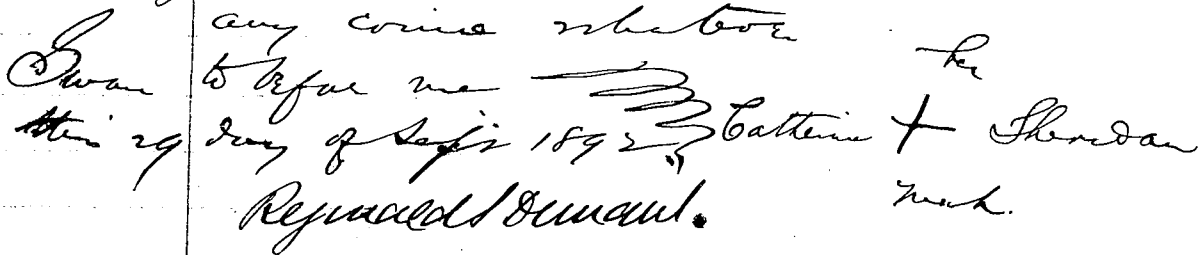 any crime whatever
her
Sworn to before me
this 29 day of Sept 1892 Catherine + Sheridan
mark.
Reginald S Demault.